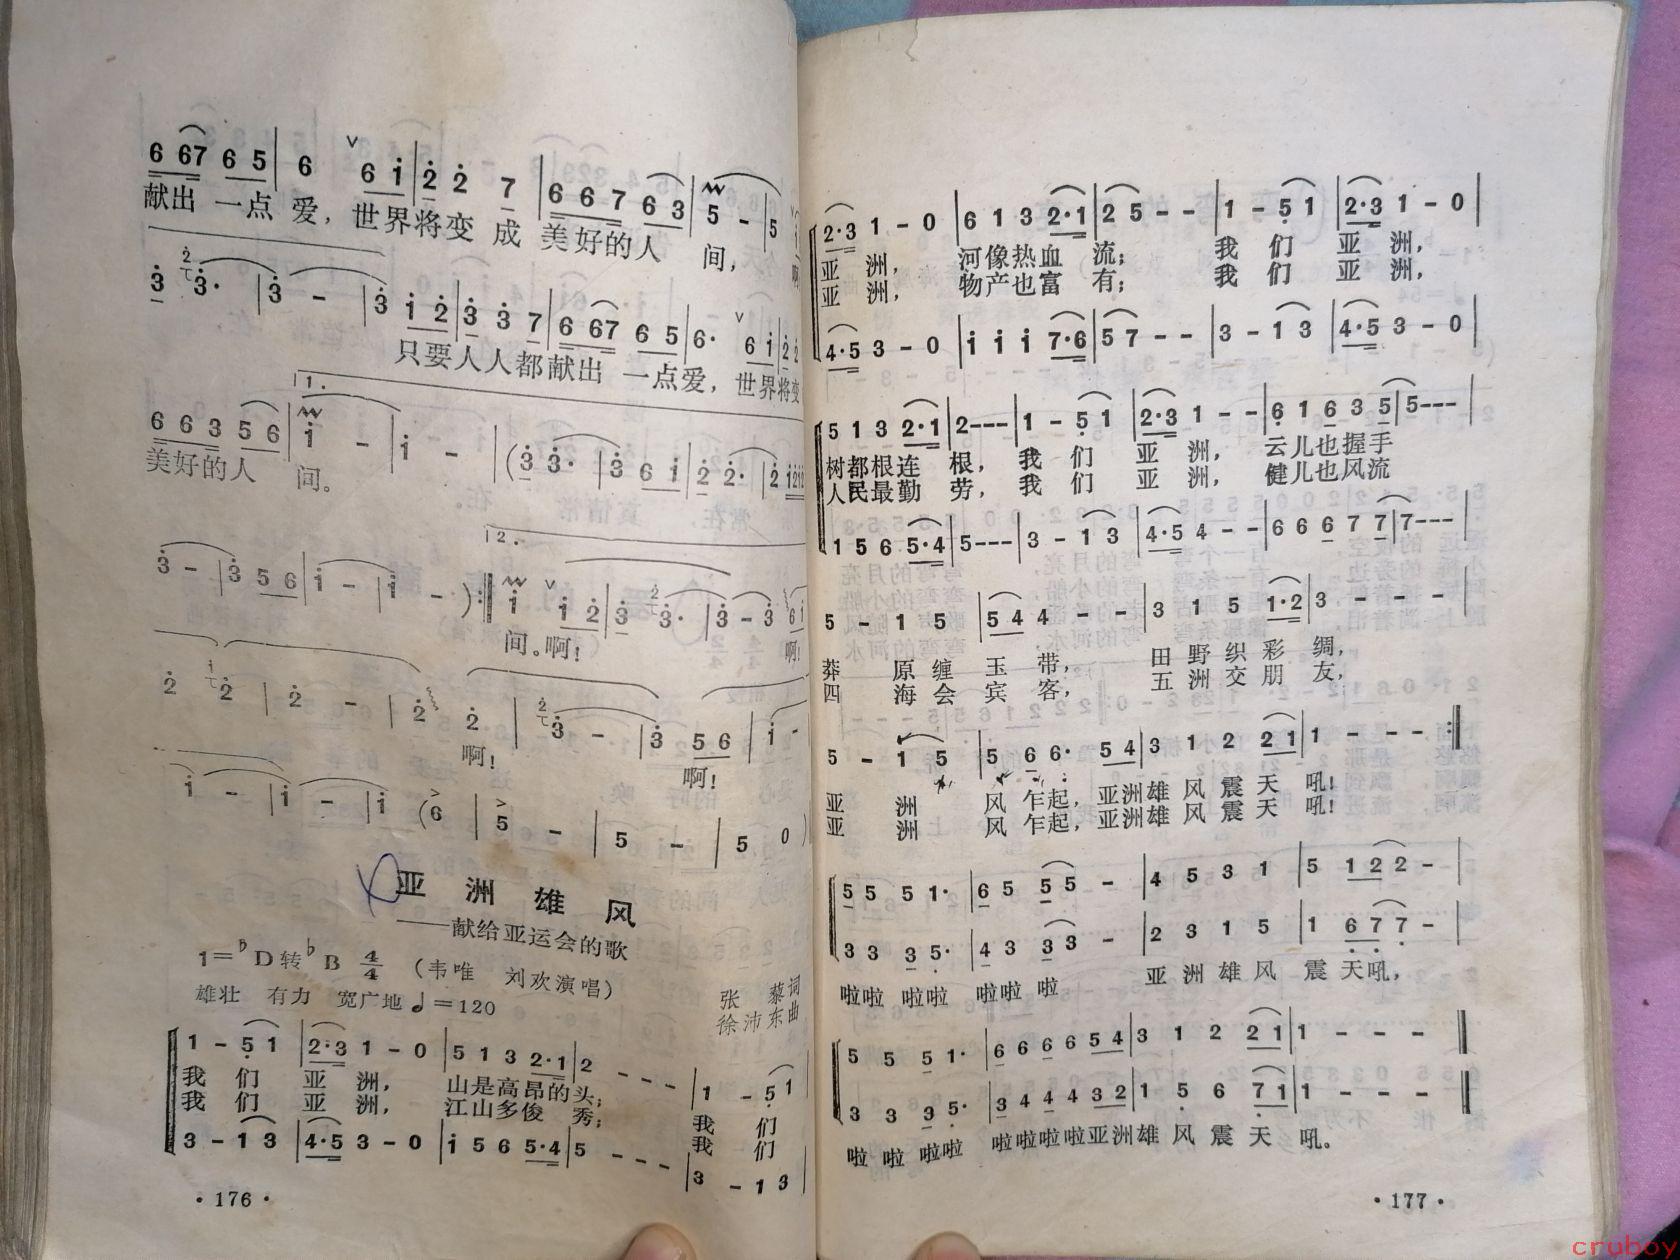 6 67 6 5 | 6 ∨ 6 i | 2 2 7 | 6 6 7 6 3 | 5 - | 5
献出 一点 爱， 世界将变 成 美好的人 间， 啊
3 3· | 3 - | 3 i 2 | 3 3 7 | 6 67 6 5 | 6· ∨ 6 i | 2 2
只要人人都献出 一点爱，世界将变
1.
6 6 3 5 6 | i - | i - | (3 3· | 3 6 i | 2 2· | 2 i2i2
美好的人 间。
2.
3 - | 3 5 6 | i - | i - ) :‖ i ∨ i 2 | 3 3· | 3 - 3 | 6 i
间。啊！ 啊！
2 2 | 2 - | 2 2 | 3 - | 3 5 6 | i -
啊！ 啊！
i - | i - | i (6 | 5 - | 5 - | 5 0)
亚 洲 雄 风
——献给亚运会的歌
1=♭D转♭B 4/4 （韦唯 刘欢演唱）
雄壮 有力 宽广地 ♩=120
张 藜词
徐沛东曲
1 - 5 1 | 2·3 1 - 0 | 5 1 3 2·1 | 2 - - - | 1 - 5 1
我 们 亚 洲， 山是高昂的头； 我 们
我 们 亚 洲， 江山多俊 秀； 我 们
3 - 1 3 | 4·5 3 - 0 | i 5 6 5·4 | 5 - - - | 3 - 1 3
·176·
2·3 1 - 0 | 6 1 3 2·1 | 2 5 - - | 1 - 5 1 | 2·3 1 - 0 |
亚 洲， 河像热血 流； 我 们 亚 洲，
亚 洲， 物产也富 有； 我 们 亚 洲，
4·5 3 - 0 | i i i 7·6 | 5 7 - - | 3 - 1 3 | 4·5 3 - 0 |
5 1 3 2·1 | 2 - - - | 1 - 5 1 | 2·3 1 - - | 6 1 6 3 5 | 5 - - - |
树都根连 根， 我 们 亚 洲， 云儿也握手
人民最勤 劳， 我 们 亚 洲， 健儿也风流
1 5 6 5·4 | 5 - - - | 3 - 1 3 | 4·5 4 - - | 6 6 6 7 7 | 7 - - - |
5 - 1 5 | 5 4 4 - - | 3 1 5 1·2 | 3 - - - |
莽 原 缠 玉 带， 田 野 织 彩 绸，
四 海 会 宾 客， 五 洲 交 朋 友，
5 - 1 5 | 5 6 6· 5 4 | 3 1 2 2 1 | 1 - - - :‖
亚 洲 风 乍起，亚洲雄 风 震 天 吼！
亚 洲 风 乍起，亚洲雄 风 震 天 吼！
5 5 5 1· | 6 5 5 5 - | 4 5 3 1 | 5 1 2 2 - |
3 3 3 5· | 4 3 3 3 - | 2 3 1 5 | 1 6 7 7 - |
啦啦 啦啦 啦啦 啦 亚 洲 雄 风 震 天吼，
5 5 5 1· | 6 6 6 6 5 4 | 3 1 2 2 1 | 1 - - - ‖
3 3 3 5· | 3 4 4 4 3 2 | 1 5 6 7 1 | 1 - - - ‖
啦 啦 啦啦 啦啦啦啦亚洲雄 风 震 天 吼。
·177·
cruboy